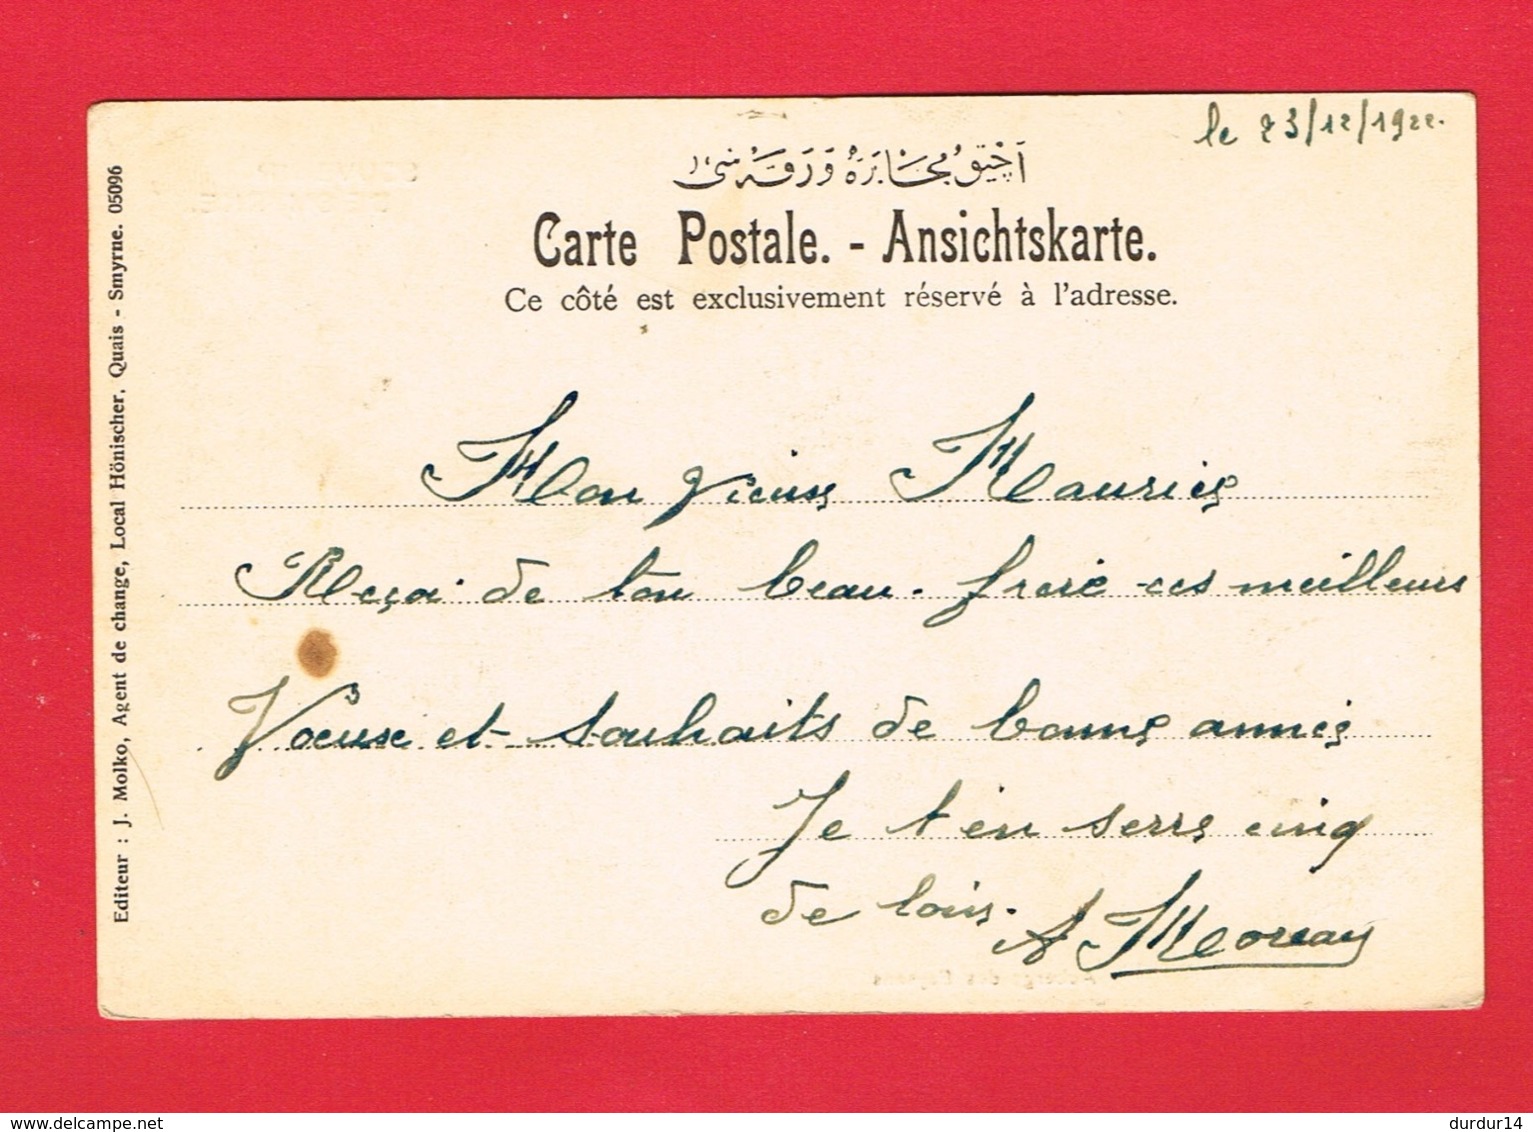 le 23/12/1922.
آچیق مخابره ورقه سی
Carte Postale. - Ansichtskarte.
Ce côté est exclusivement réservé à l'adresse.
Editeur : J. Molko, Agent de change, Local Hönischer, Quais - Smyrne. 05096
Mon vieux Maurice
Reçoi de ton beau-frere ces meilleurs
Voeuxe et souhaits de bonne année
Je t'en serre cinq
de loin. A Moreau
delcampe.net
durdur14